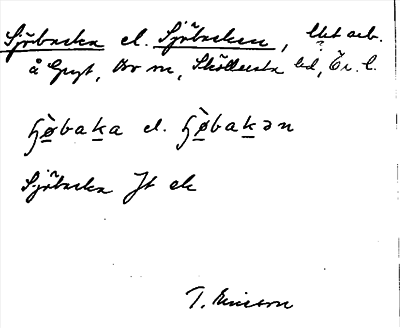 Sjöbacka el. Sjöbacken, litet
å Gryt, Bo m, Sköllersta hd, Ör. l.
ɧø̀baka el. ɧø̀bakən
Sjöbacka Jt ek
T. Ericson